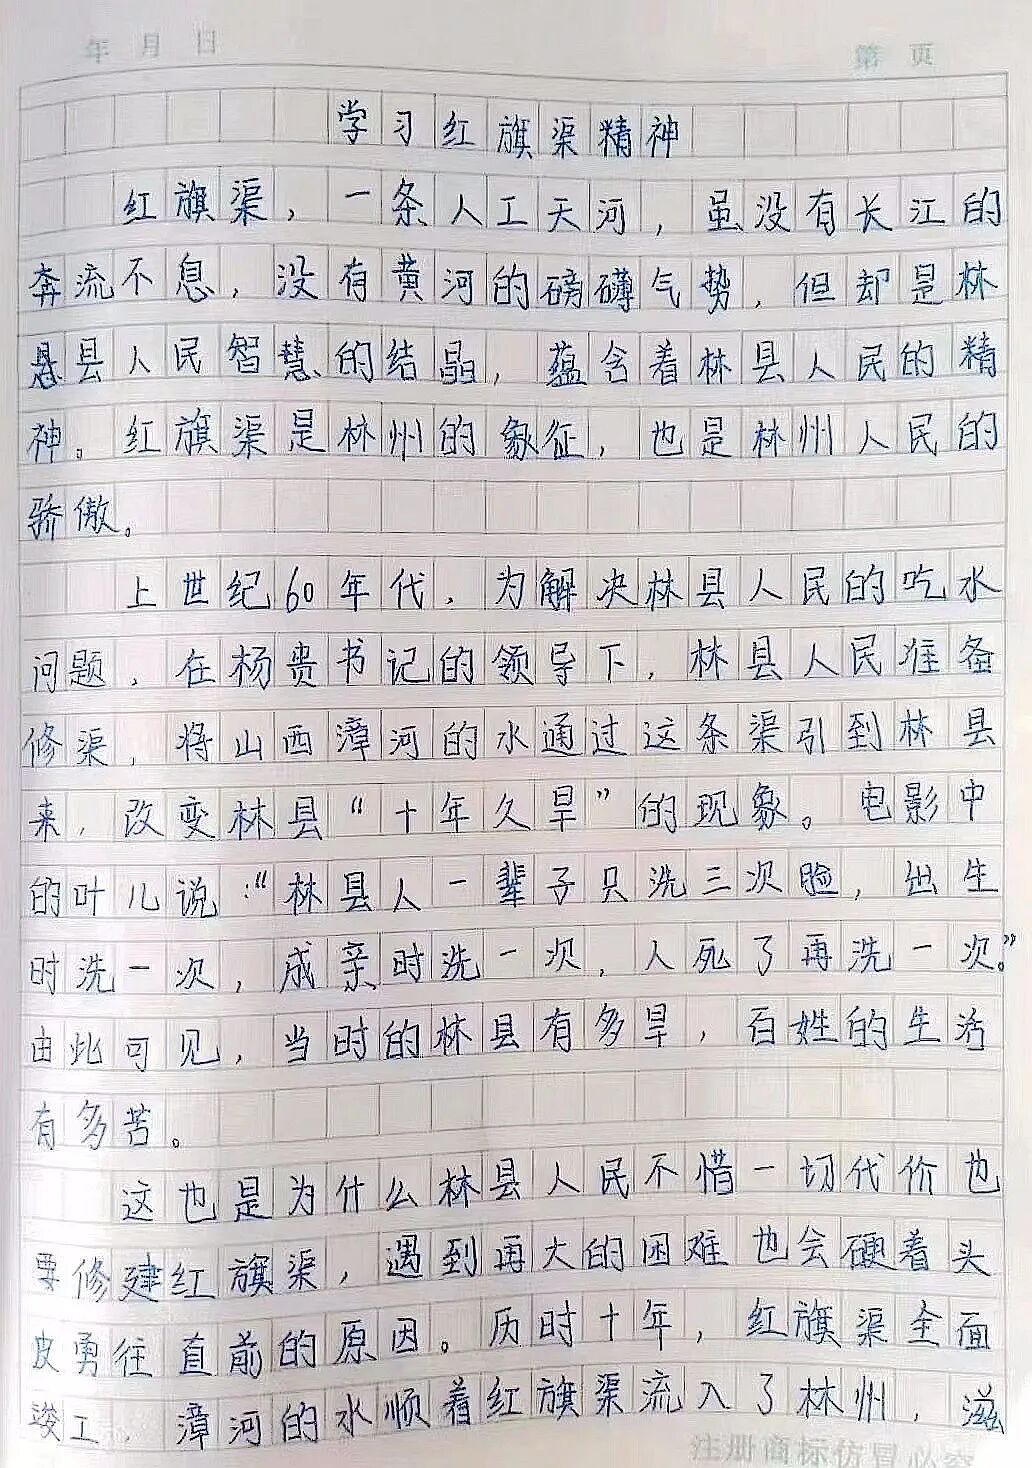 年 月 日
第 页
学习红旗渠精神
红旗渠，一条人工天河，虽没有长江的
奔流不息，没有黄河的磅礴气势，但却是林
县人民智慧的结晶，蕴含着林县人民的精
神。红旗渠是林州的象征，也是林州人民的
骄傲。
上世纪60年代，为解决林县人民的吃水
问题，在杨贵书记的领导下，林县人民准备
修渠，将山西漳河的水通过这条渠引到林县
来，改变林县“十年久旱”的现象。电影中
的叶儿说：“林县人一辈子只洗三次脸，出生
时洗一次，成亲时洗一次，人死了再洗一次。”
由此可见，当时的林县有多旱，百姓的生活
有多苦。
这也是为什么林县人民不惜一切代价也
要修建红旗渠，遇到再大的困难也会硬着头
皮勇往直前的原因。历时十年，红旗渠全面
竣工，漳河的水顺着红旗渠流入了林州，滋
注册商标仿冒必究